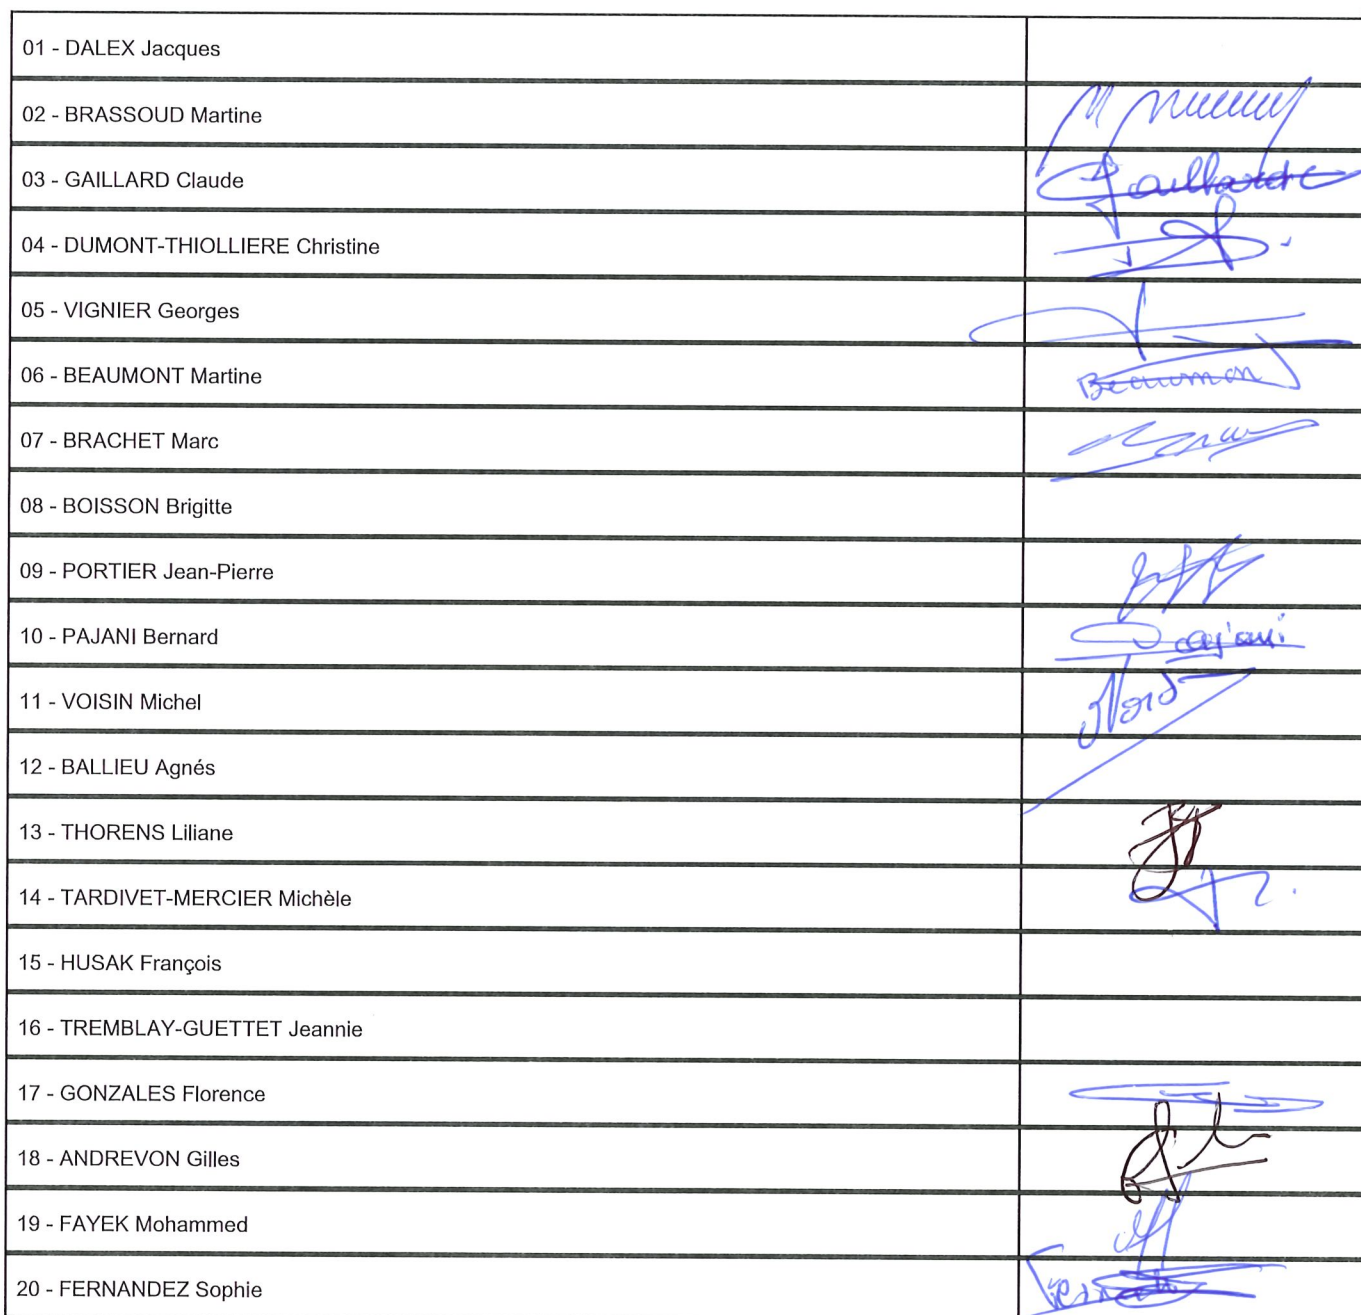 01 - DALEX Jacques
02 - BRASSOUD Martine
03 - GAILLARD Claude Gaillard
04 - DUMONT-THIOLLIERE Christine
05 - VIGNIER Georges
06 - BEAUMONT Martine Beaumon
07 - BRACHET Marc
08 - BOISSON Brigitte
09 - PORTIER Jean-Pierre
10 - PAJANI Bernard Pajani
11 - VOISIN Michel
12 - BALLIEU Agnés
13 - THORENS Liliane
14 - TARDIVET-MERCIER Michèle
15 - HUSAK François
16 - TREMBLAY-GUETTET Jeannie
17 - GONZALES Florence
18 - ANDREVON Gilles
19 - FAYEK Mohammed
20 - FERNANDEZ Sophie